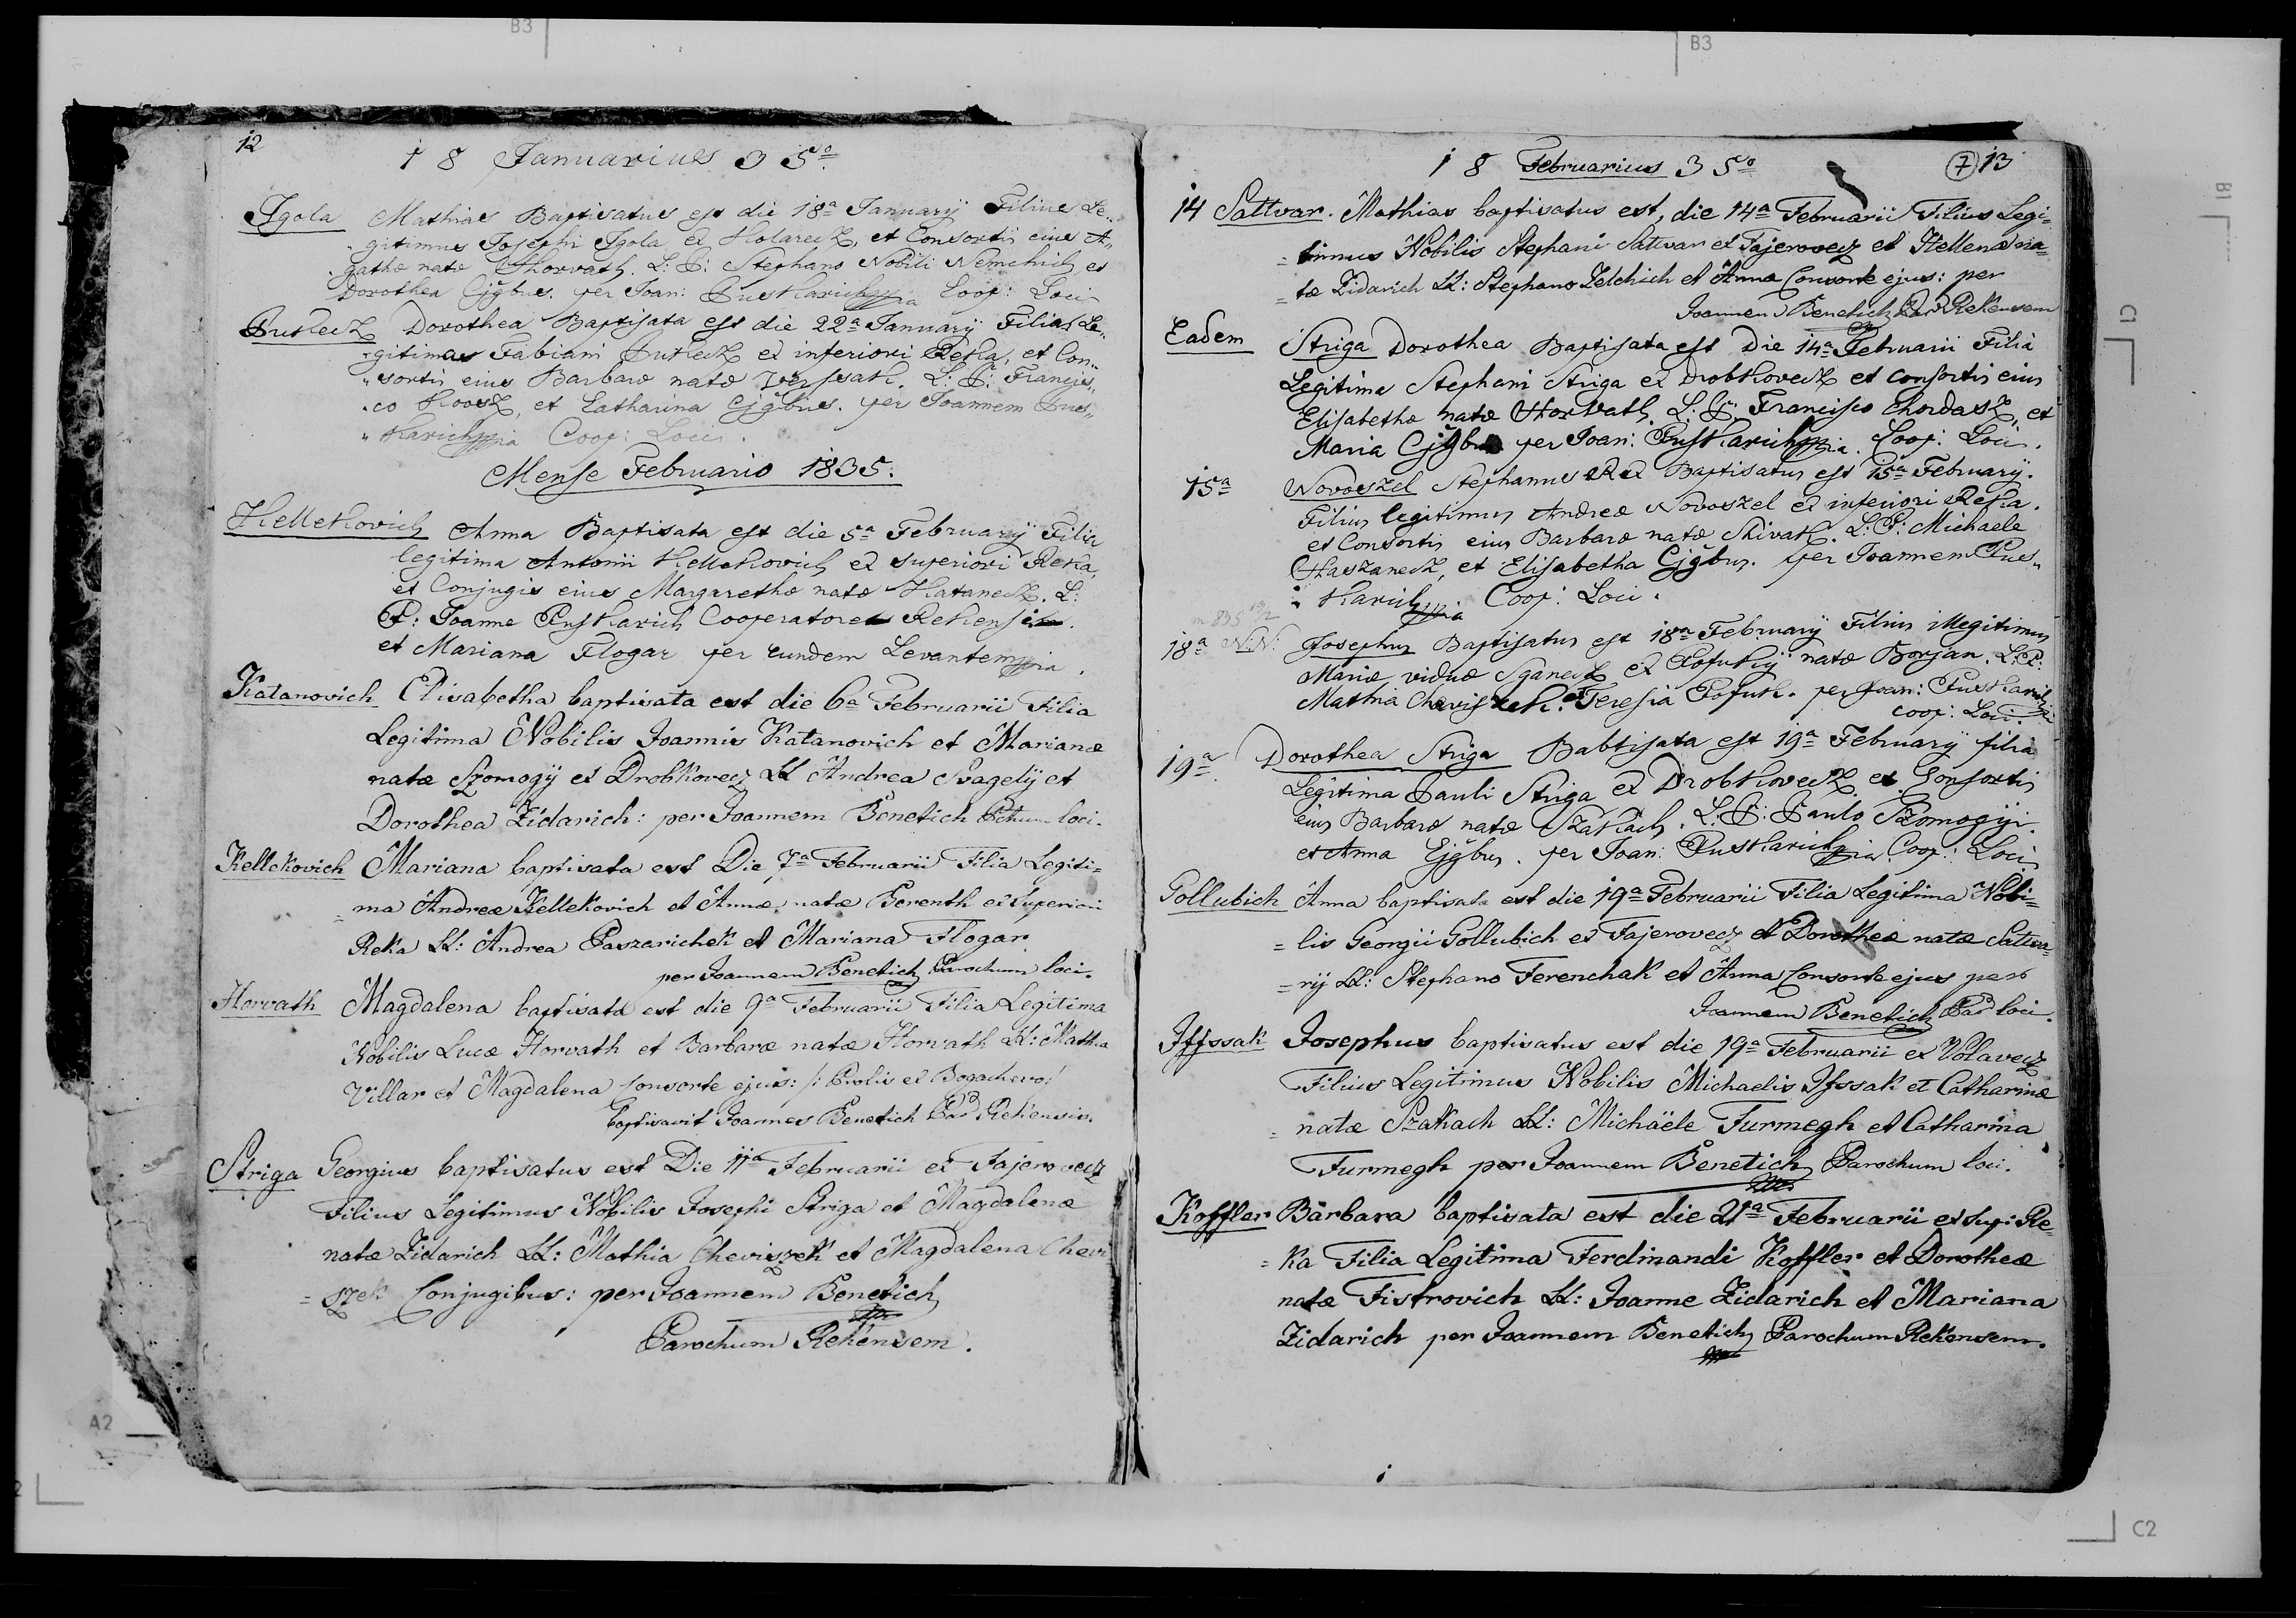 B3
B3
12
1 8 Januarius 3 5to
Igola Mathias Baptisatus est die 18a Januarÿ Filius Le„
„gitimus Josephi Igola ex Kolareck, et Consortis eius A„
„gathæ natæ Horvath. L: P: Stephano Nobili Nemchich et
Dorothea Cjgbus. per Joan: Puskarich mpia Coop: Loci
Putreck Dorothea Baptisata est die 22a Januarÿ Filia Le„
„gitima Fabiani Putreck ex inferiori Reka, et Con„
„sortis eius Barbaræ natæ L: P: Francis„
„co et Catharina Cjgbus. per Joannem Pus„
„karich mpia Coop: Loci.
Mense Februario 1835.
Kellekovich Anna Baptisata est die 5a Februarÿ Filia
legitima Antonii Kellekovich ex superiori Reka,
et Conjugis eius Margarethæ natæ Hataneck. L:
P: Joanne Puskarich Cooperatore Rekensi
et Mariana Flogar per eundem Levantem mpia.
Katanovich Elisabetha baptisata est die 6a Februarii Filia
Legitima Nobilis Joannis Katanovich et Marianæ
natæ Szomogÿ ex Drobkovecz LL Andrea Svagelÿ et
Dorothea Zidarich: per Joannem Benetich Pchum loci.
Kellekovich Mariana baptisata est Die 7a Februarii Filia Legiti=
=ma Andreæ Kellekovich et Annæ natæ Berenth ex Superiori
Reka LL: Andrea Paszarichek et Mariana Flogar
per Joannem Benetich Parochum loci.
Horvath Magdalena baptisata est die 9a Februarii Filia Legitima
Nobilis Lucæ Horvath et Barbaræ natæ Horvath LL: Mathia
Villar et Magdalena Consorte ejus: /: Prolis ex Bogachevo:/
Baptisavit Joannes Benetich Par Rekensis.
Striga Georgius baptisatus est Die 11a Februarii ex Fajerovecz
Filius Legitimus Nobilis Josephi Striga et Magdalenæ
natæ Zidarich LL: Mathia Cheviszek et Magdalena Chevi
=szek Conjugibus: per Joannem Benetich
Parochum Rekensem.
1 8 Februarius 3 5to
7 13
14 Sattvar. Mathias baptisatus est, die 14a Februarii Filius Legi=
=timus Nobilis Stephani Sattvar ex Fajerovecz et Hellenæ na=
=tæ Zidarich LL: Stephano Zelchich et Anna Consorte ejus: per
Joannem Benetich Par Rekensem
Eadem Striga Dorothea Baptisata est Die 14a Februarii Filia
Legitima Stephani Striga ex Drobkoveck et consortis eius
Elisabethæ natæ Horvath. L: P: Francisco Chordash, et
Maria Cjgbus per Joan: Puskarich mpia. Coop: Loci.
15a Novoszel Stephanus Baptisatus est 15a Februarÿ.
Filius legitimus Andreæ Novoszel ex inferiori Reka.
et Consortis eius Barbaræ natæ L: P: Michaele
Haszaneck, et Elisabetha Cjgbus. per Joannem Pus„
„karich mpia Coop: Loci.
18a N.N: Josephus Baptisatus est 18a Februarÿ Filius illegitimus
Mariæ viduæ ex natæ Borjan. L: P:
Mathia Cheviszek. et Teresia per Joan: Puskarich
coop: Loci.
19a Dorothea Striga Babtisata est 19a Februarÿ filia
Legitima Pauli Striga ex Drobkoveck et Consortis
eius Barbaræ natæ Szakach. L: P: Paulo Szomogÿi
et Anna Cjgbus. per Joan: Puskarich mpia. Coop: Loci
Gollubich Anna baptisata est die 19a Februarii Filia Legitima Nobi=
=lis Georgii Gollubich ex Fajerovecz et Dorotheæ natæ Sattva=
=rÿ LL: Stephano Ferenchak et Anna Consorte ejus per
Joannem Benetich Par loci.
Iffssak Josephus baptisatus est die 19a Februarii ex Volavecz
Filius Legitimus Nobilis Michaelis Ifssak et Catharinæ
=natæ Szakach LL: Michaële Furmegh et Catharina
Furmegh per Joannem Benetich Parochum loci.
Koffler Barbara baptisata est die 21a Februarii ex Sup: Re=
=ka Filia Legitima Ferdinandi Koffler et Dorotheæ
natæ Fistrovich LL: Joanne Zidarich et Mariana
Zidarich per Joannem Benetich Parochum Rekensem.
B1
C1
A2
C2